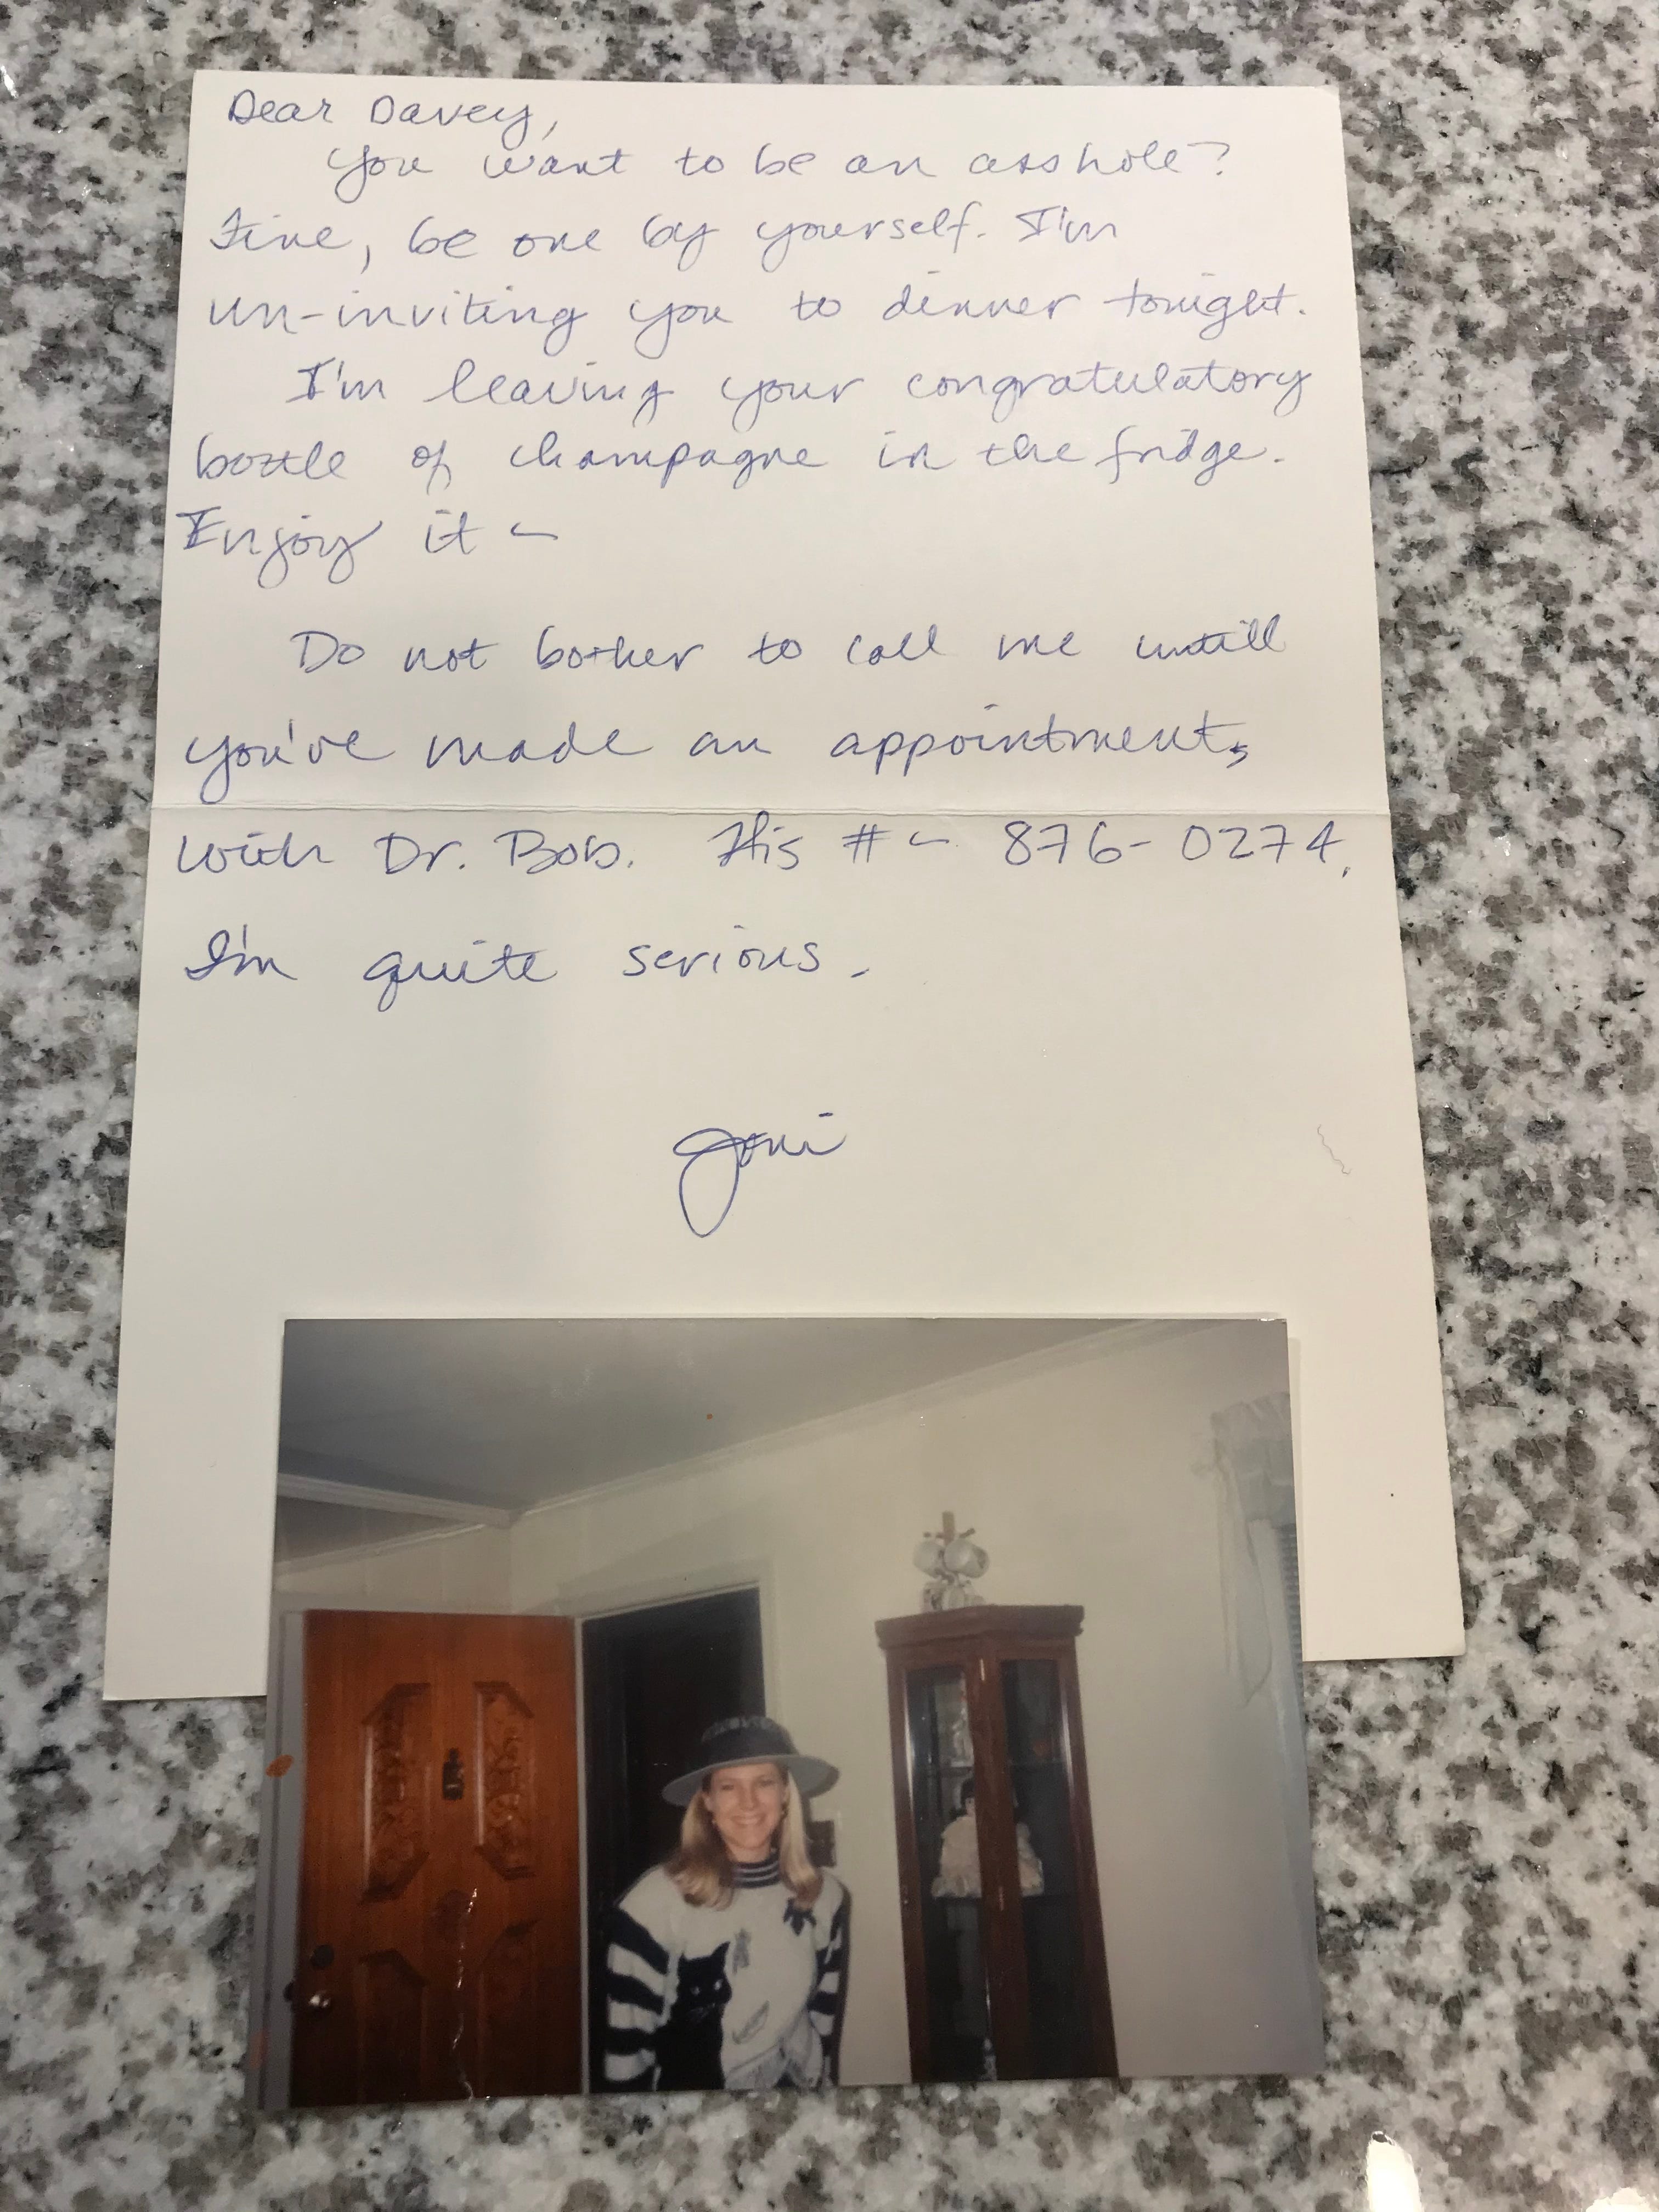 Dear Davey,
You want to be an asshole?
Fine, be one by yourself. I'm
un-inviting you to dinner tonight.
I'm leaving your congratulatory
bottle of champagne in the fridge.
Enjoy it –
Do not bother to call me untill
you've made an appointment,
with Dr. Bob. His # – 876-0274.
I'm quite serious.
Joni